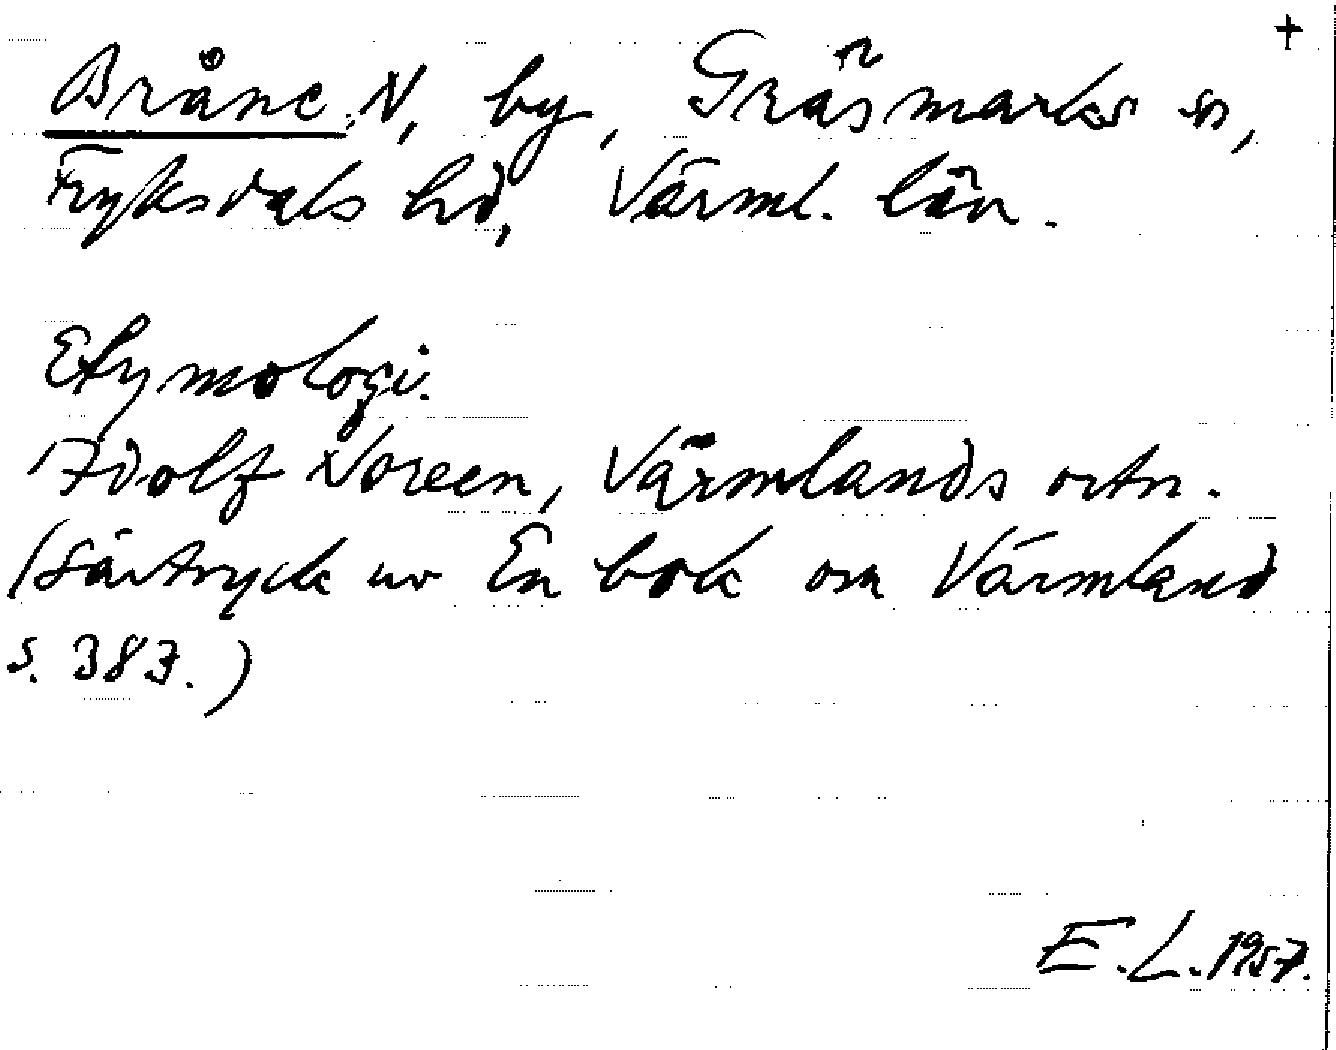 +
Bråne N, by, Gräsmarks sn,
Fryksdals hd, Värml. län.
Etymologi.
Adolf Noreen, Värmlands ortn.
(Särtryck ur En bok om Värmland
s. 387.)
E.L. 1957.